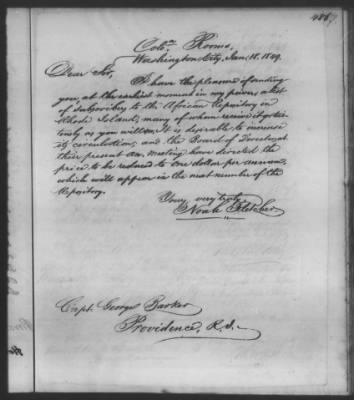 488
Coln. Rooms,
Washington City, Jan. 18. 1849.
Dear Sir,
I have the pleasure of sending
you, at the earliest moment in my power, a list
of Subscribers to the African Repository in
Rhode Island, many of whom receive it gratui-
tously as you will see. It is desirable to increase
its circulation; and the Board of Directors at
their present An. Meeting have directed the
price to be reduced to one dollar per annum,
which will appear in the next number of the
Repository.
Yours, very truly,
Noah Fletcher
Capt. George Barker
Providence, R.I.